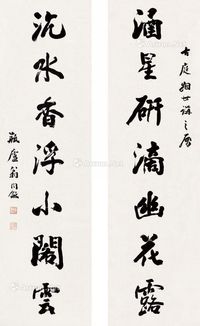 古庭姻世講之屬
涵星研滴幽花露
沉水香浮小閣雲
瓶廬翁同龢